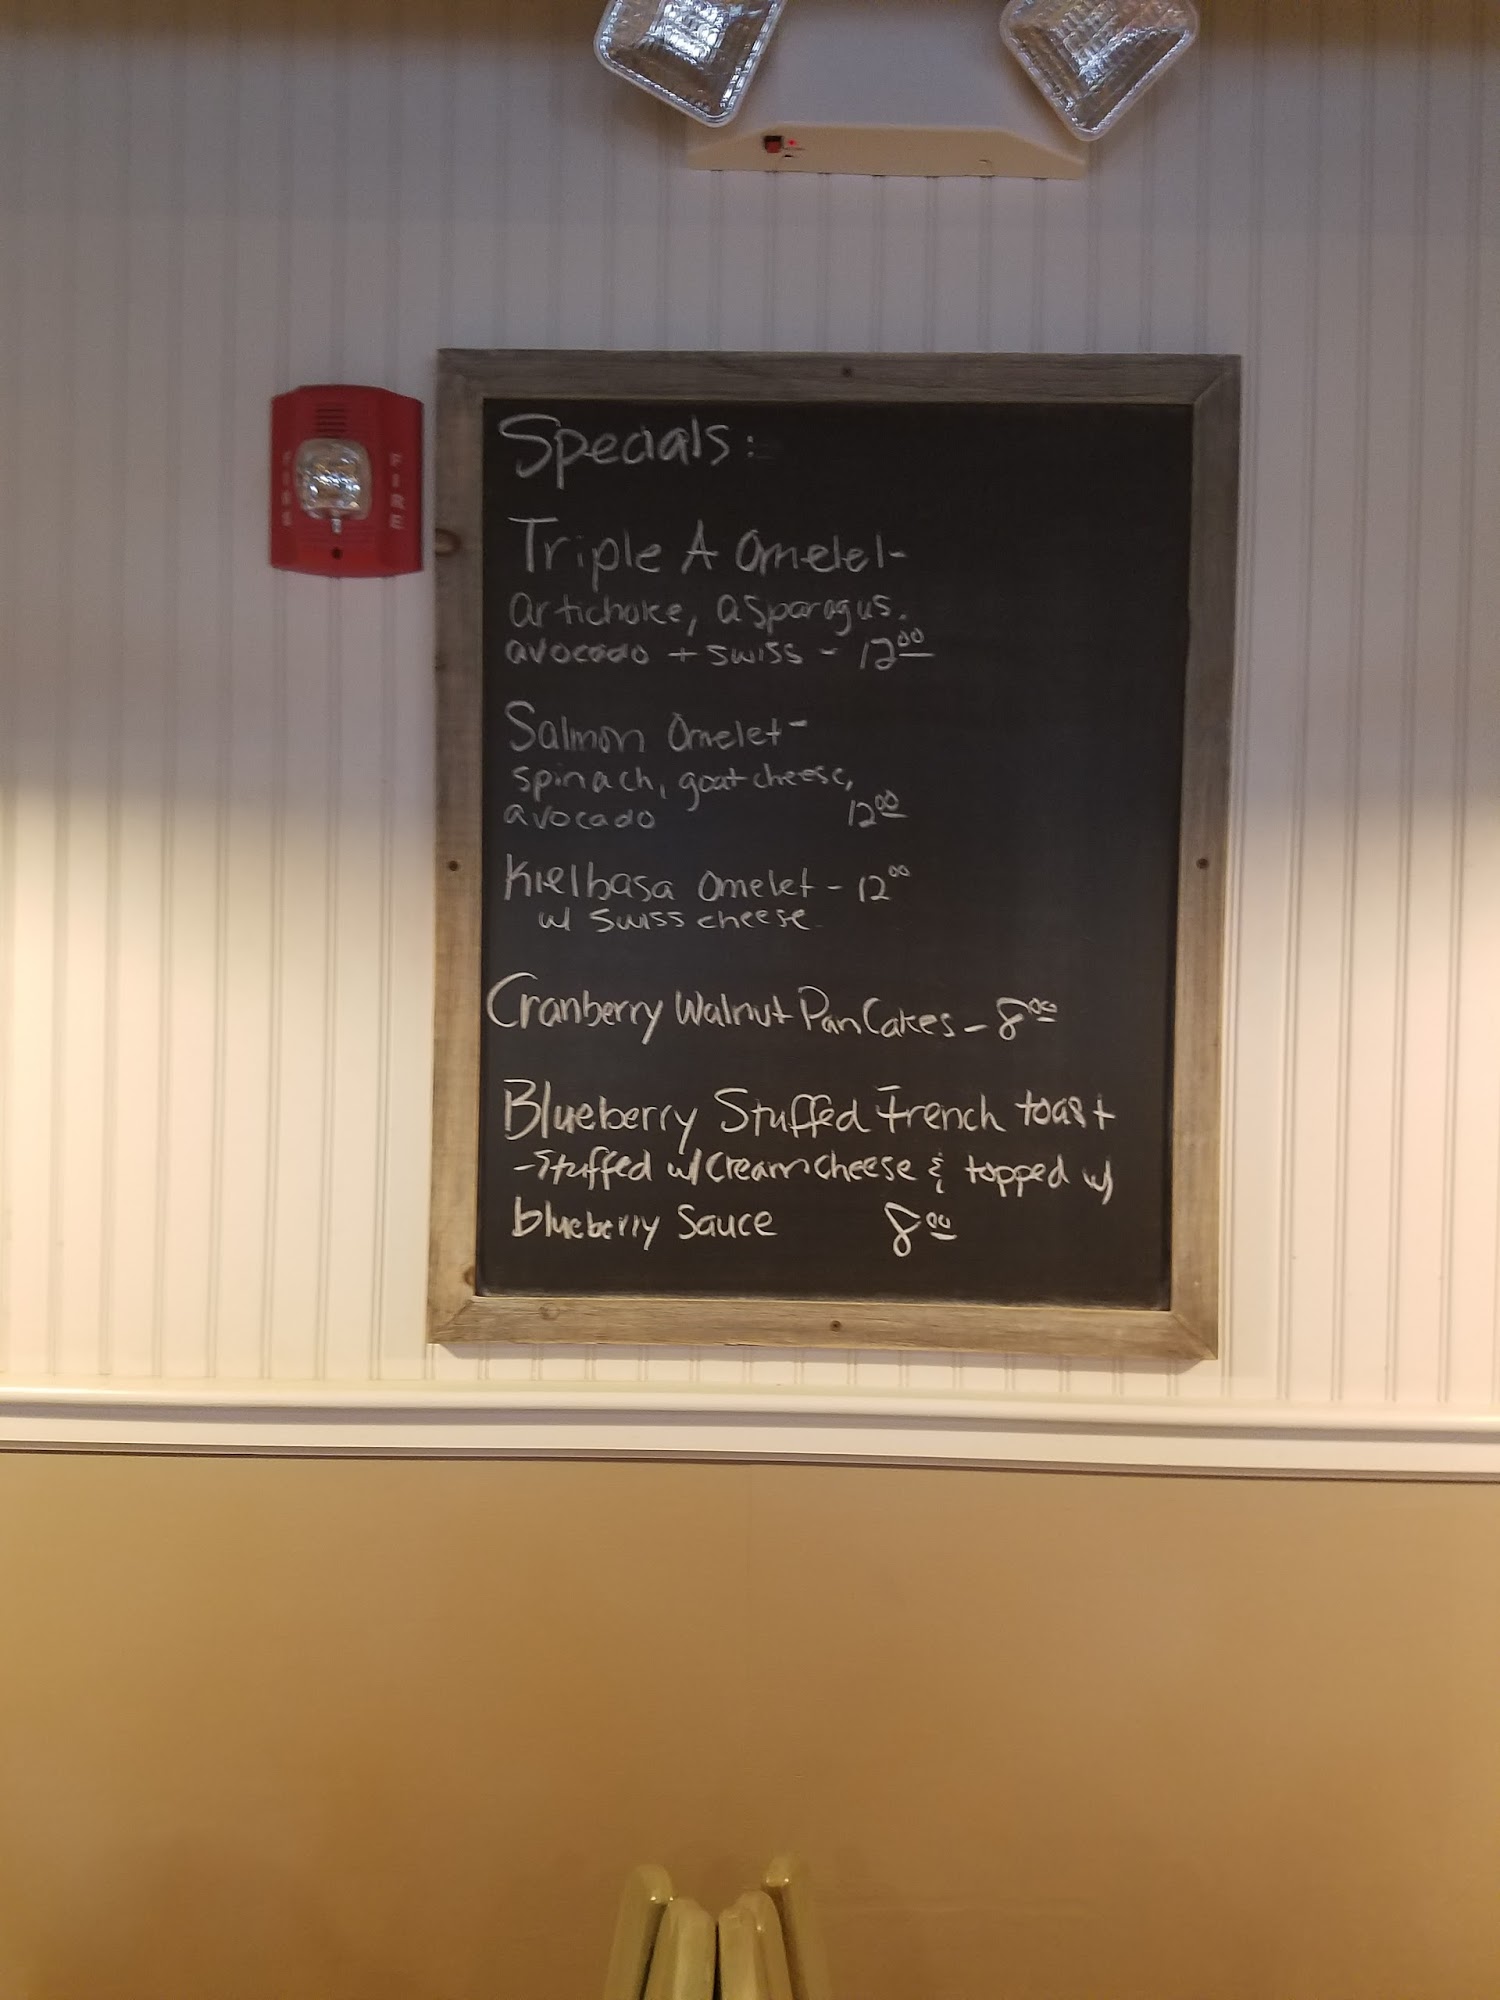 Specials:
Triple A Omelet-
artichoke, asparagus.
avocado + swiss - 12⁰⁰
Salmon Omelet-
spinach, goat cheese,
avocado 12⁰⁰
Kielbasa Omelet - 12⁰⁰
w/ swiss cheese
Cranberry Walnut PanCakes - 8⁰⁰
Blueberry Stuffed French toast
-Stuffed w/ Cream Cheese & topped w/
blueberry Sauce 8⁰⁰
FIRE
FIRE